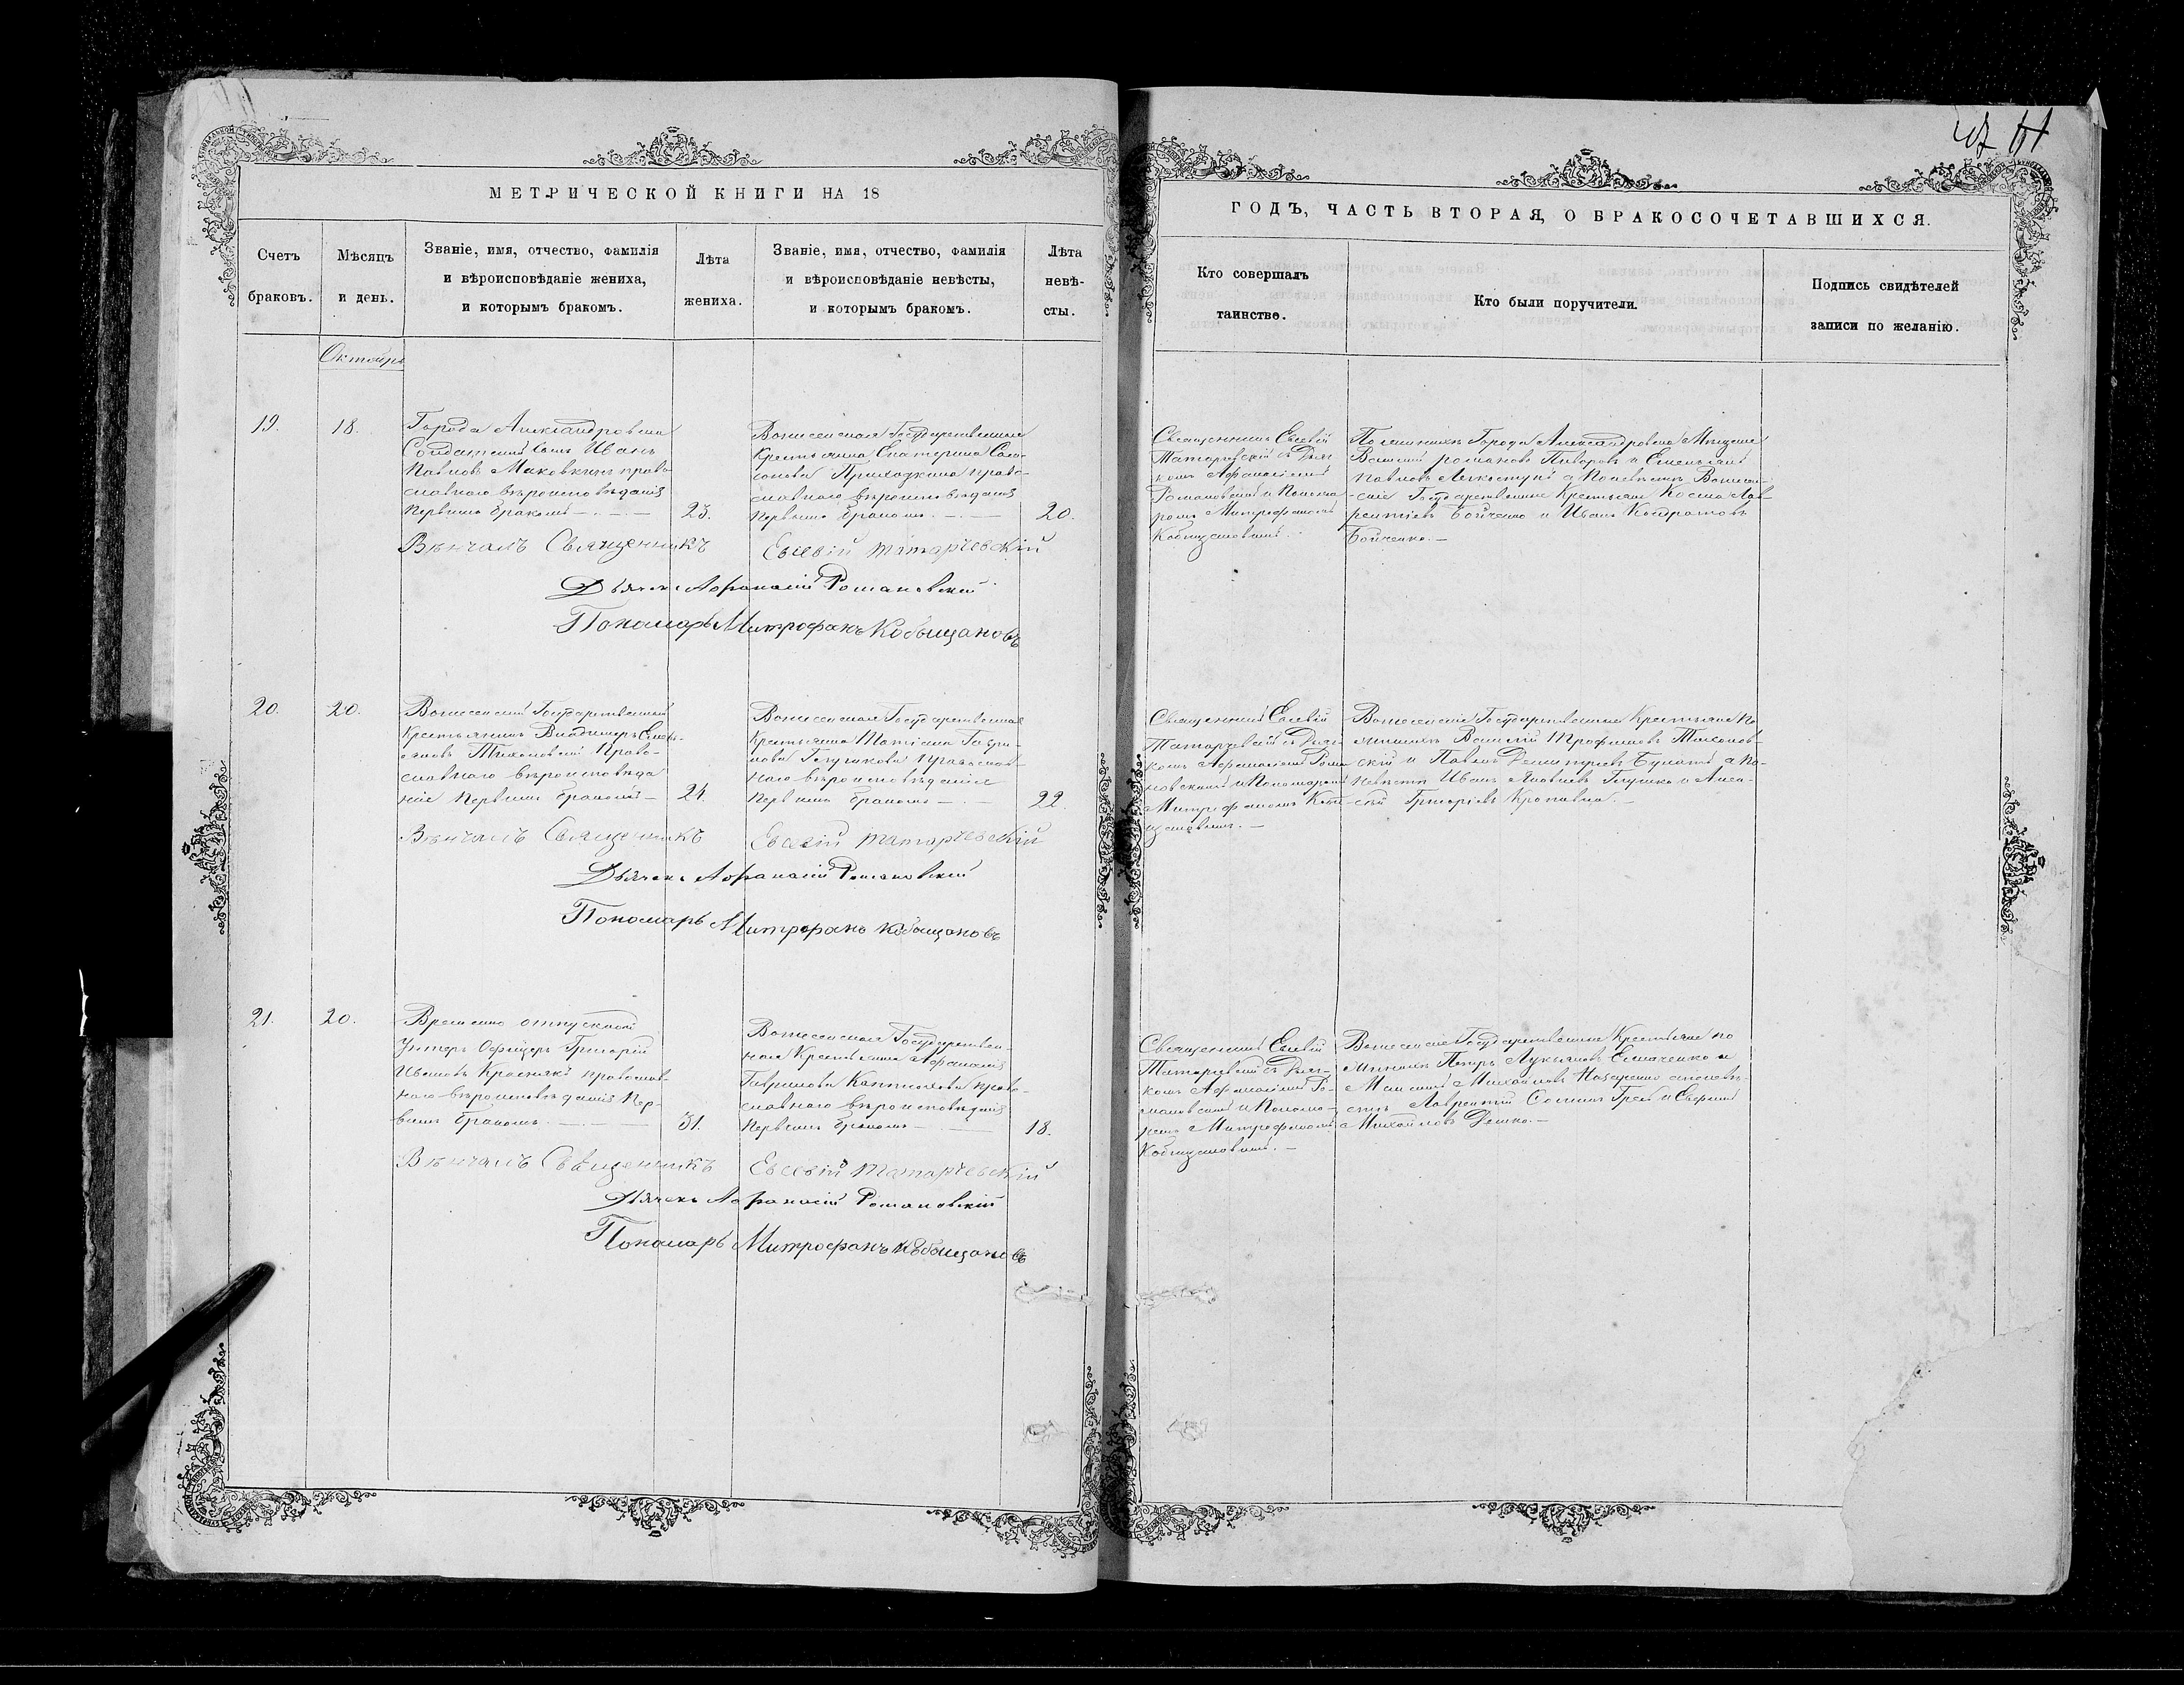 61
МЕТРИЧЕСКОЙ КНИГИ НА 18
ГОДЪ, ЧАСТЬ ВТОРАЯ, О БРАКОСОЧЕТАВШИХСЯ.
Счетъ
браковъ.
Мѣсяцъ
и день.
Званіе, имя, отчество, фамилія
и вѣроисповѣданіе жениха,
и которымъ бракомъ.
Лѣта
жениха.
Званіе, имя, отчество, фамилія
и вѣроисповѣданіе невѣсты,
и которымъ бракомъ.
Лѣта
невѣ-
сты.
Кто совершалъ
таинство.
Кто были поручители.
Подпись свидѣтелей
записи по желанію.
Октябрь
19.
18.
Города Александровска
Солдатскій сынъ Иванъ
Павловъ Маковкинъ право-
славнаго вѣроисповѣданія
первымъ бракомъ —
23.
Вознесенская Государственная
Крестьянка Екатерина
Приходкина право-
славнаго вѣроисповѣданія
первымъ бракомъ —
20.
Священникъ Евсевій
Татарчевскій съ Дьяч-
комъ Афанасіемъ
Романовскимъ и Понома-
ромъ Митрофаномъ
Кобыщановымъ.
По женихѣ Города Александровска Мѣщане
Василій Романовъ Пивоваръ и Емельянъ
Павловъ а По невѣстѣ Вознесен-
скіе Государственные Крестьяне Косма Лав-
рентіевъ Бойченко и Иванъ Кондратовъ
Бойченко. —
Вѣнчалъ Священникъ Евсевій Татарчевскій
Дьячекъ Афанасій Романовскій
Пономарь Митрофанъ Кобыщановъ
20.
20.
Вознесенскій Государственный
Крестьянинъ Владимиръ Емель-
яновъ Тихоновскій Право-
славнаго вѣроисповѣда
нія первымъ бракомъ —
24.
Вознесенская Государственная
Крестьянка Татіана Гаври-
лова православ-
наго вѣроисповѣданія
первымъ бракомъ —
22.
Священникъ Евсевій
Татарчевскій съ Дьяч-
комъ Афанасіемъ Рома
новскимъ и Пономаремъ
Митрофаномъ Кобы-
щановымъ. —
Вознесенскіе Государственные Крестьяне по
женихѣ Василій Трофимовъ Тихонов-
скій и Павелъ Димитріевъ Булатъ а по
невѣстѣ Иванъ Яковлевъ Глушко и Алек-
сѣй Григоріевъ Кропивка. —
Вѣнчалъ Священникъ Евсевій Татарчевскій
Дьячекъ Афанасій Романовскій
Пономарь Митрофанъ Кобыщановъ
21.
20.
Временно отпускной
Унтеръ Офицеръ Григорій
Ивановъ Краснякъ православ-
наго вѣроисповѣданія пер-
вымъ бракомъ. —
31.
Вознесенская Государствен-
ная Крестьянка Афанасія
Гаврилова право-
славнаго вѣроисповѣданія
первымъ бракомъ —
18.
Священникъ Евсевій
Татарчевскій съ Дьяч-
комъ Афанасіемъ Ро-
мановскимъ и Понома-
ремъ Митрофаномъ
Кобыщановымъ. —
Вознесенскіе Государственные Крестьяне по
женихѣ Петръ Лукьяновъ Ермаченко и
Максимъ Михайловъ Назаренко а по невѣ-
стѣ Лаврентій и
Михайловъ Дешко. —
Вѣнчалъ Священникъ Евсевій Татарчевскій
Дьячекъ Афанасій Романовскій
Пономарь Митрофанъ Кобыщановъ